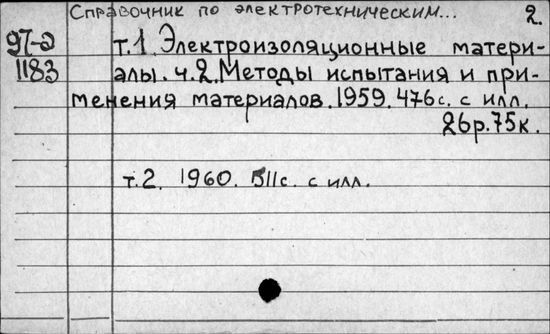 Справочник по электротехническим... 2.
97-2
1183
т.1. Электроизоляционные матери-
алы. ч.2. Методы испытания и при-
менения материалов. 1959. 476с. с илл.
26р.75к.
т.2. 1960. 511с. с илл.